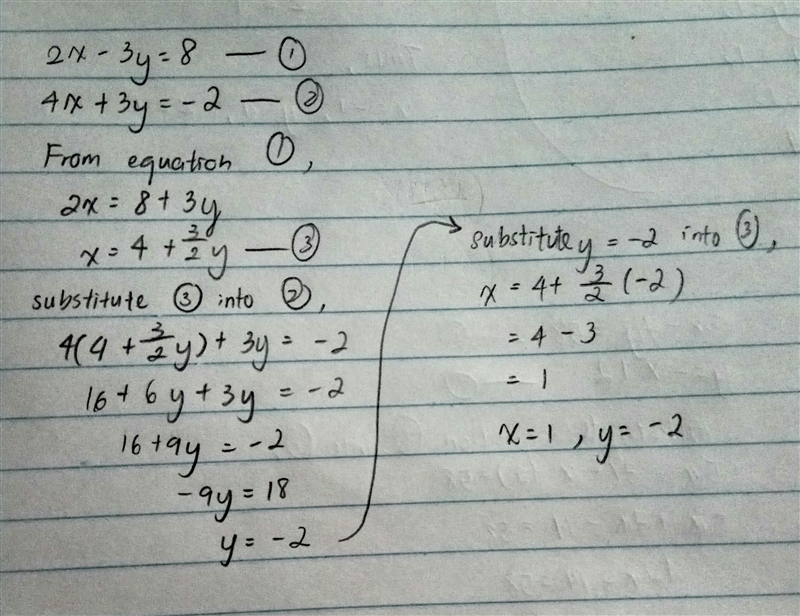 2x - 3y = 8 — ①
4x + 3y = -2 — ②
From equation ①,
2x = 8 + 3y
x = 4 + 3/2 y — ③
substitute ③ into ②,
4(4 + 3/2 y) + 3y = -2
16 + 6y + 3y = -2
16 + 9y = -2
-9y = 18
y = -2
substitute y = -2 into ③,
x = 4 + 3/2 (-2)
= 4 - 3
= 1
x = 1 , y = -2